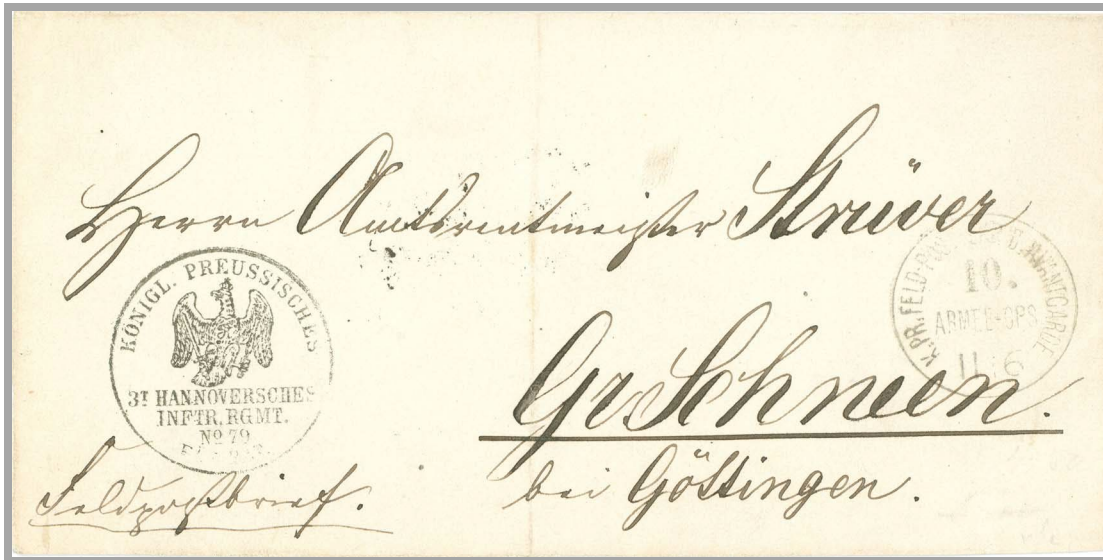 Herrn Amtsrentmeister Strüver
KÖNIGL. PREUSSISCHES
3T HANNOVERSCHES
INFTR. RGMT.
No 79
K.PR.FELD-POST AVANTGARDE
10.
ARMEE-CPS
11 6
Gr. Schneen.
bei Göttingen.
Feldpostbrief.